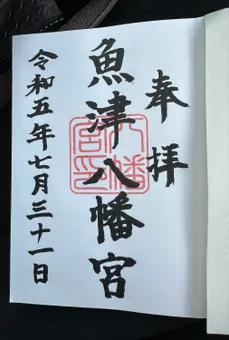 奉拝
魚津八幡宮
八幡宮印
令和五年七月三十一日